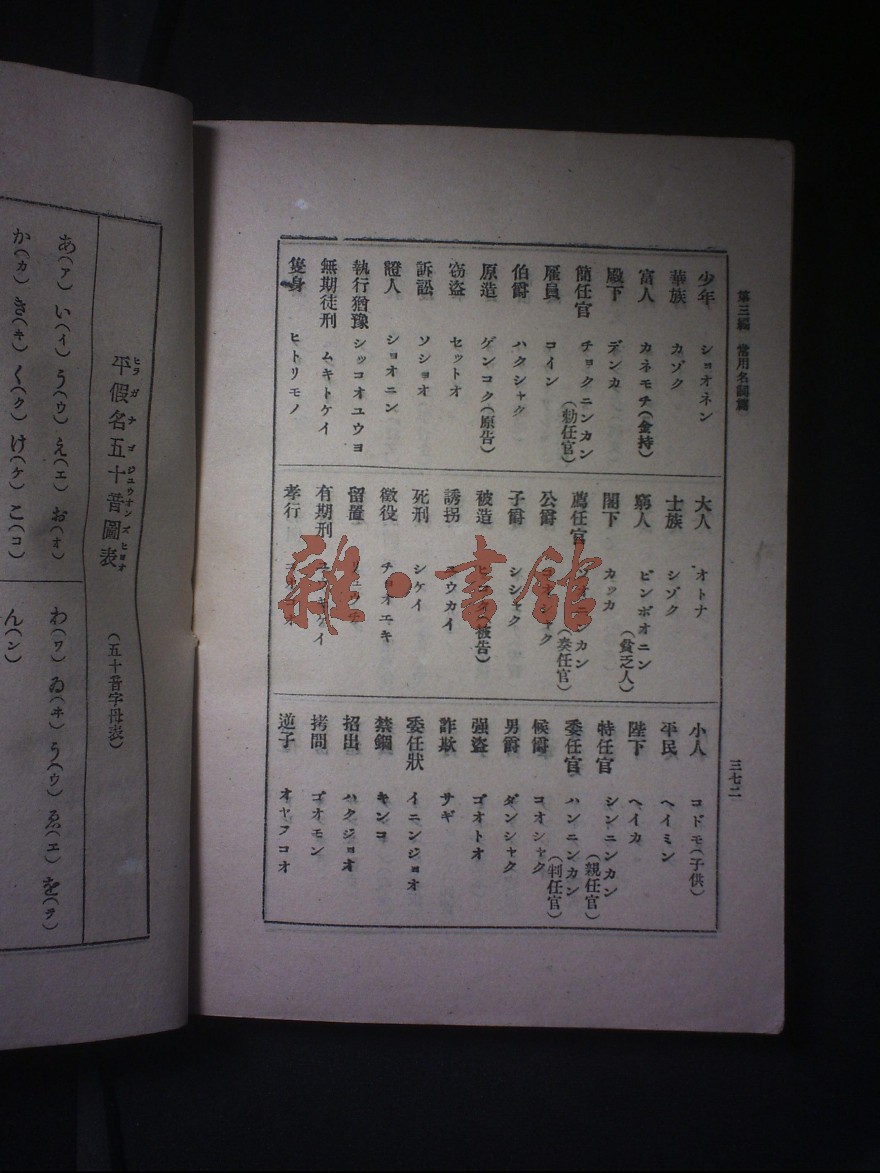 第三編 常用名詞篇
三七二
少年 ショオネン
華族 カゾク
富人 カネモチ(金持)
殿下 デンカ
簡任官 チョクニンカン(勅任官)
雇員 コイン
伯爵 ハクシャク
原造 ゲンコク(原告)
窃盗 セットオ
訴訟 ソショオ
證人 ショオニン
執行猶豫 シッコオユウヨ
無期徒刑 ムキトケイ
隻身 ヒトリモノ
大人 オトナ
士族 シゾク
窮人 ビンボオニン(貧乏人)
閣下 カッカ
薦任官 ニンカン(奏任官)
公爵
子爵 シシャク
被造 (被告)
誘拐 ユウカイ
死刑 シケイ
徵役 チョオエキ
留置
有期刑 ケイ
孝行
小人 コドモ(子供)
平民 ヘイミン
陛下 ヘイカ
特任官 シンニンカン(親任官)
委任官 ハンニンカン(判任官)
候爵 コオシャク
男爵 ダンシャク
强盗 ゴオトオ
詐欺 サギ
委任狀 イニンジョオ
禁錮 キンコ
招出 ハクジョオ
拷問 ゴオモン
逆子 オヤフコオ
雜·書舘
平假名五十音圖表
ヒラガナゴジュウオンズヒョオ
(五十音字母表)
あ(ア) い(イ) う(ウ) え(エ) お(オ)
か(カ) き(キ) く(ク) け(ケ) こ(コ)
わ(ワ) ゐ(ヰ) う(ウ) ゑ(エ) を(ヲ)
ん(ン)